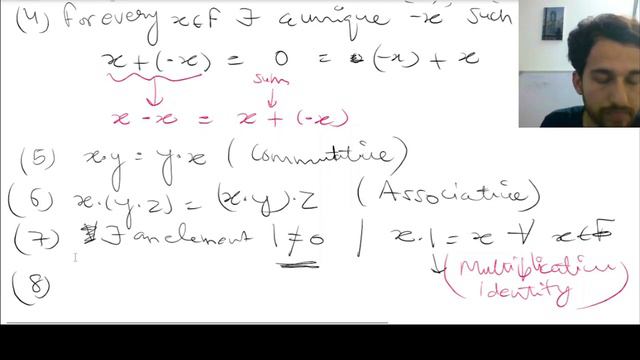 (4) For every x ∈ F ∃ a unique -x such
x + (-x) = 0 = (-x) + x
sum
x - x = x + (-x)
(5) x·y = y·x (Commutative)
(6) x·(y·z) = (x·y)·z (Associative)
(7) ∃ an element 1 ≠ 0 | x·1 = x ∀ x ∈ F
(Multiplicative
identity)
(8)